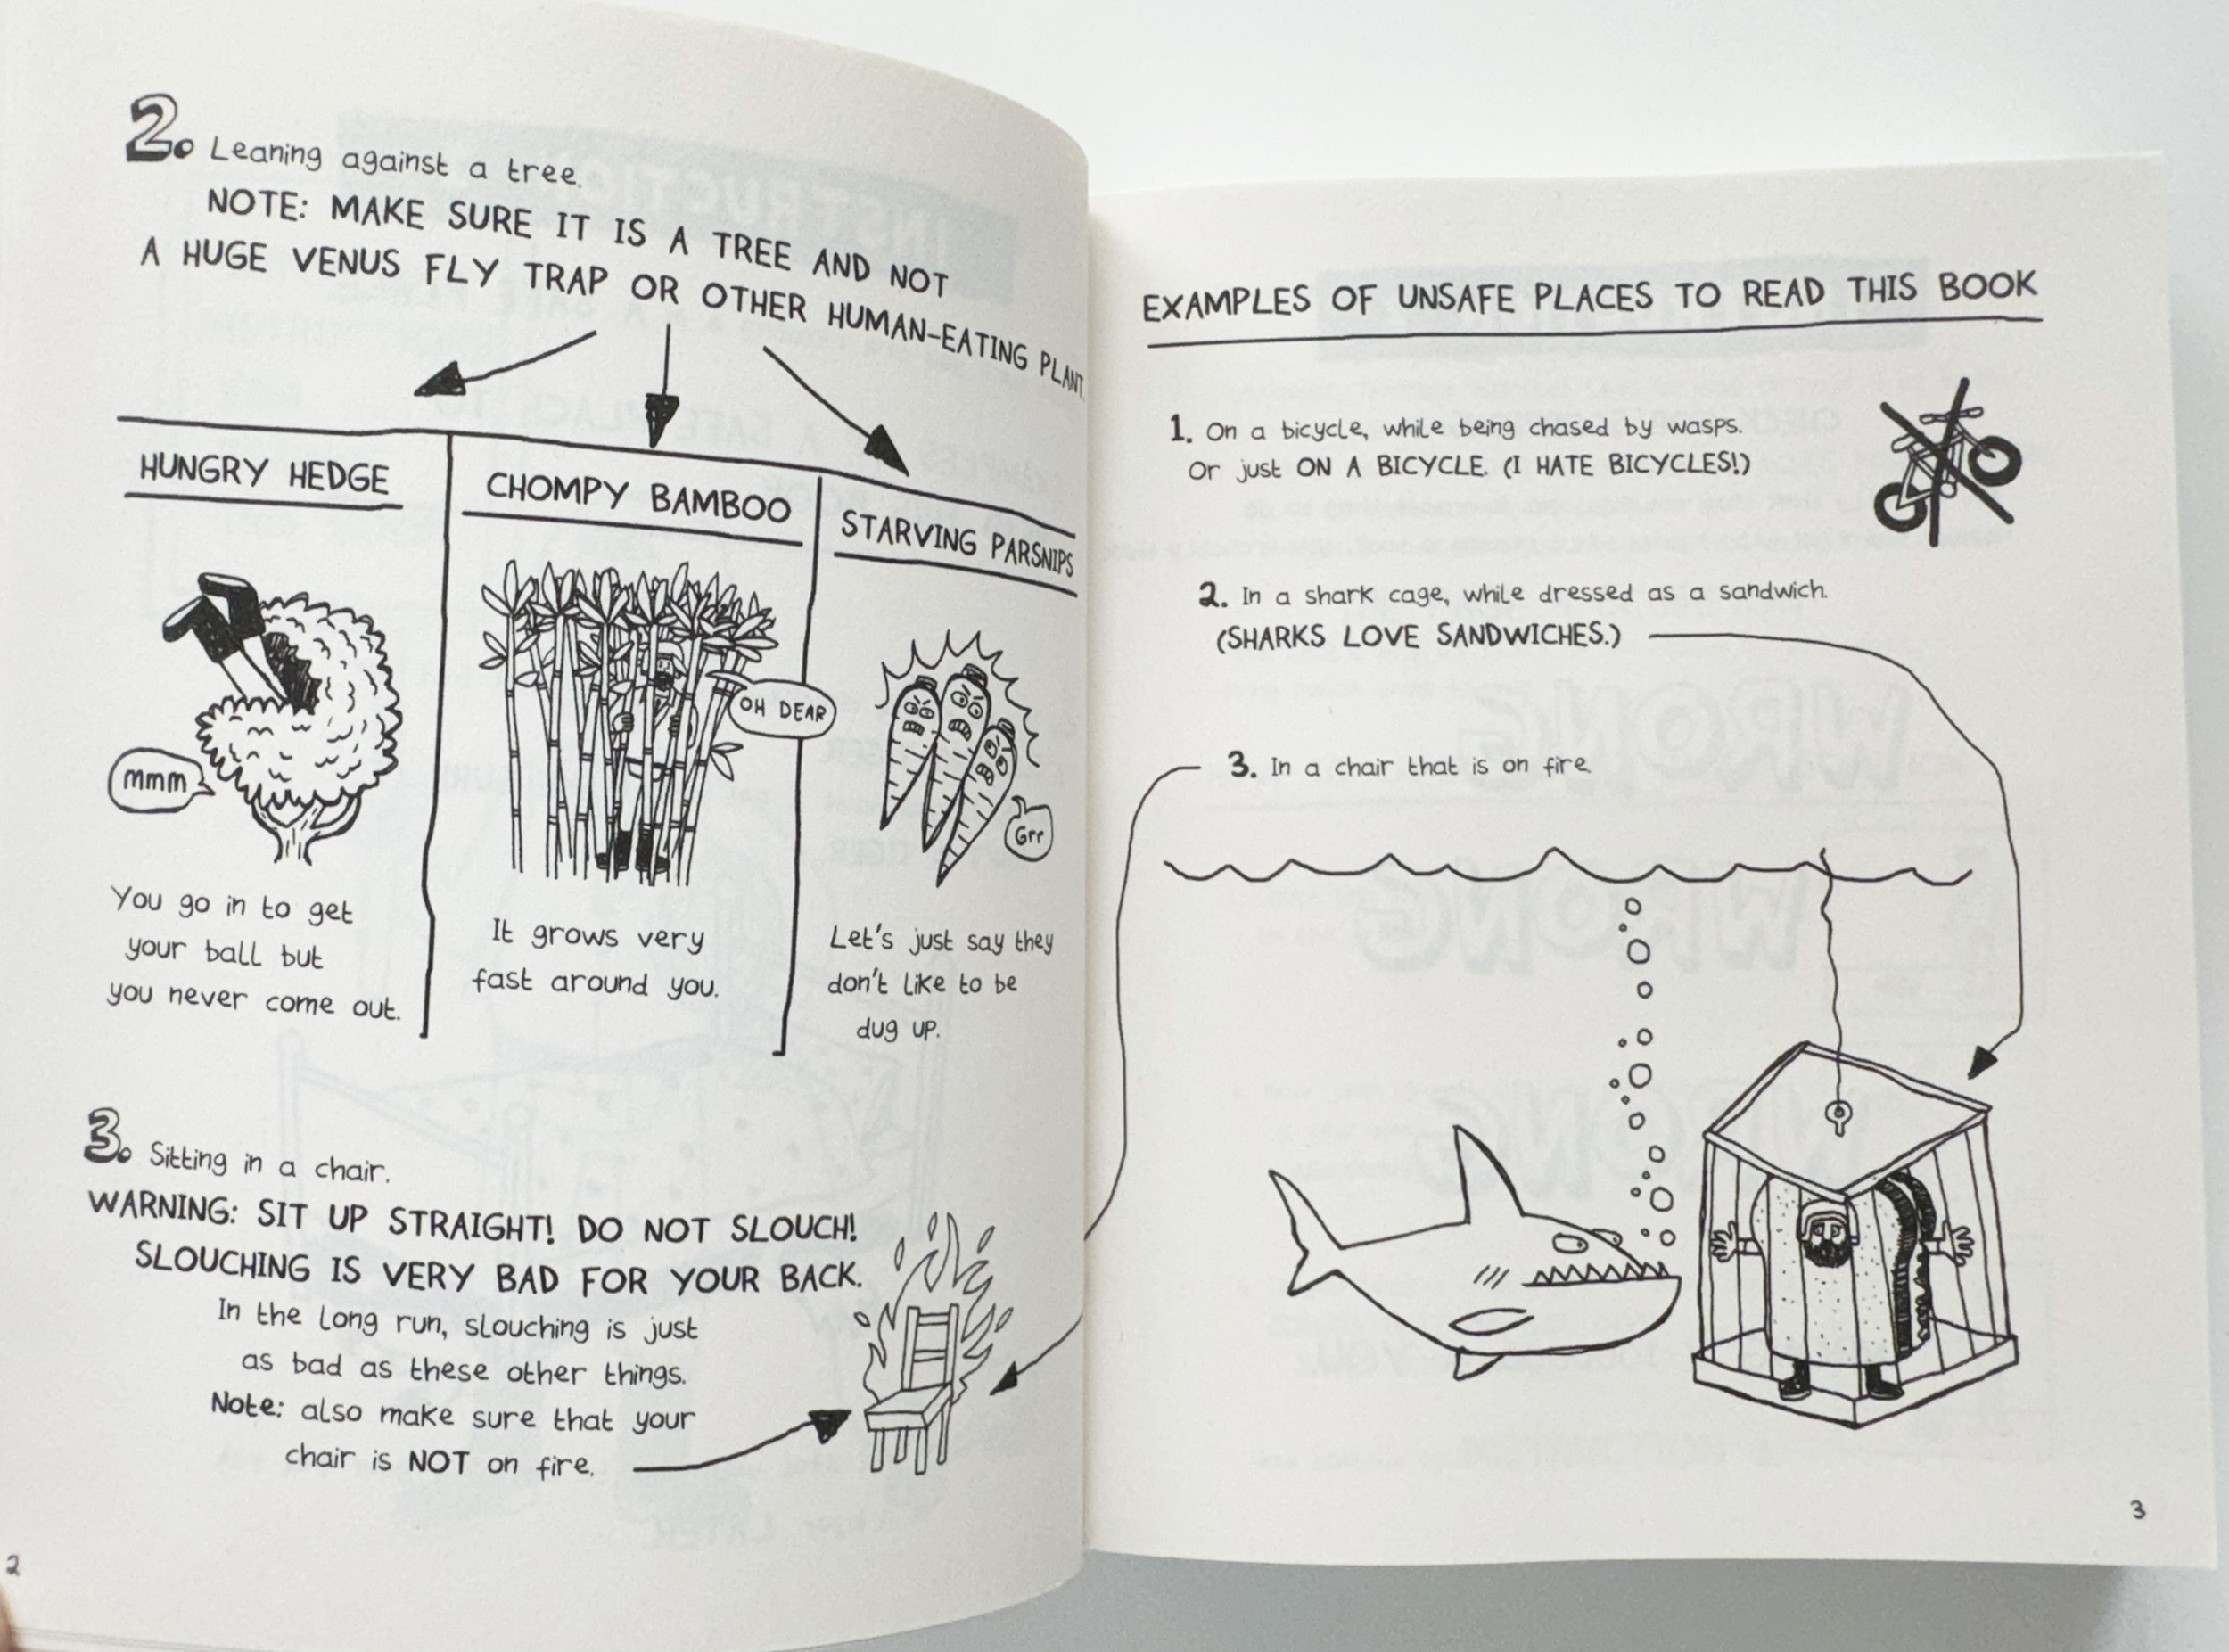 2. Leaning against a tree.
NOTE: MAKE SURE IT IS A TREE AND NOT
A HUGE VENUS FLY TRAP OR OTHER HUMAN-EATING PLANT.
HUNGRY HEDGE
mmm
You go in to get
your ball but
you never come out.
CHOMPY BAMBOO
OH DEAR
It grows very
fast around you.
STARVING PARSNIPS
Grr
Let's just say they
don't like to be
dug up.
3. Sitting in a chair.
WARNING: SIT UP STRAIGHT! DO NOT SLOUCH!
SLOUCHING IS VERY BAD FOR YOUR BACK.
In the long run, slouching is just
as bad as these other things.
Note: also make sure that your
chair is NOT on fire.
2
EXAMPLES OF UNSAFE PLACES TO READ THIS BOOK
1. On a bicycle, while being chased by wasps.
Or just ON A BICYCLE. (I HATE BICYCLES!)
2. In a shark cage, while dressed as a sandwich.
(SHARKS LOVE SANDWICHES.)
3. In a chair that is on fire.
3